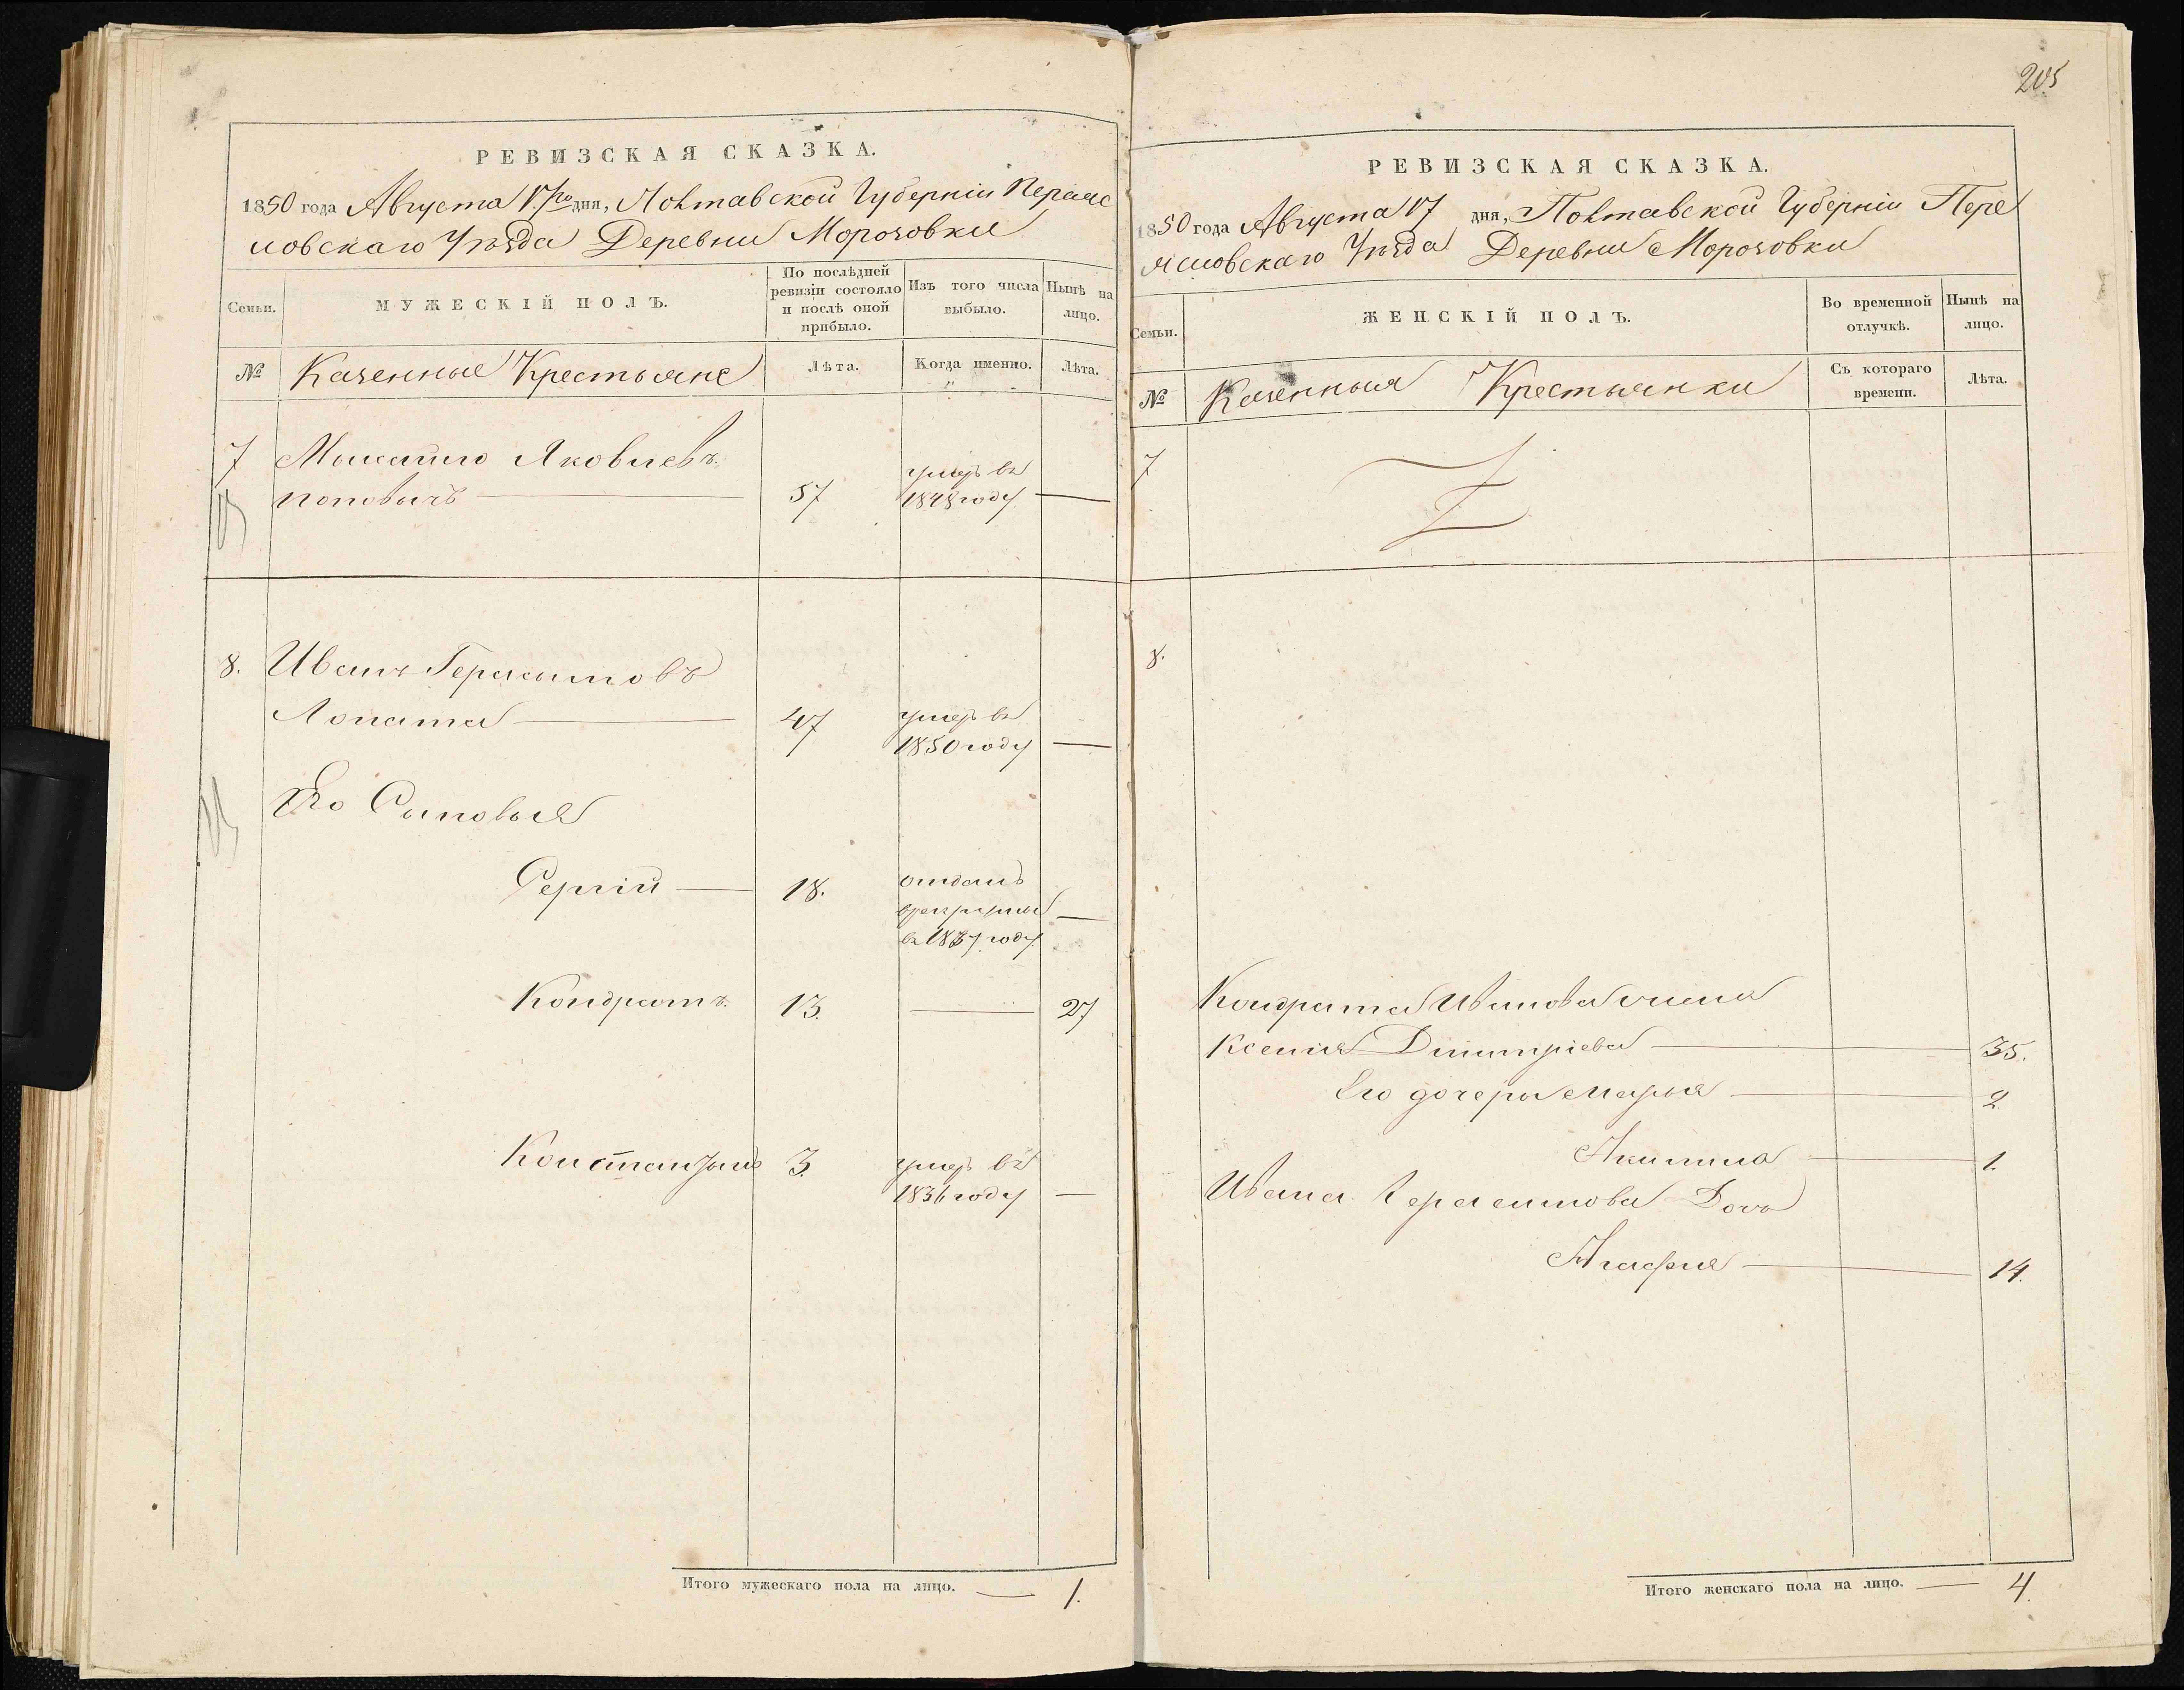 РЕВИЗСКАЯ СКАЗКА.
1850 года Августа 17го дня, Полтавской Губерніи Переяс
ловскаго Уѣзда Деревни Морозовки
Семьи.
МУЖЕСКІЙ ПОЛЪ.
По послѣдней
ревизіи состояло
и послѣ оной
прибыло.
Изъ того числа
выбыло.
Нынѣ на
лицо.
№
Казенные Крестьяне
Лѣта.
Когда именно.
Лѣта.
7 Михайло Яковлевъ
поповичъ 57 умеръ въ
1848 году
8. Иванъ Герасимовъ
Лопата 47 умеръ въ
1850 году
Его Сыновья
Сергій 18. отданъ
в 1837 году
Кондратъ 13. 27
Константинъ 3. умеръ въ
1836 году
Итого мужескаго пола на лицо. 1.
205
РЕВИЗСКАЯ СКАЗКА.
1850 года Августа 17 дня, Полтавской Губерніи Пере
ясловскаго Уѣзда Деревни Морозовки
Семьи.
ЖЕНСКІЙ ПОЛЪ.
Во временной
отлучкѣ.
Нынѣ на
лицо.
№
Казенныя Крестьянки
Съ котораго
времени.
Лѣта.
7
8.
Кондрата Иванова жена
Ксенія Дмитріева 35.
Его дочери Марья 2.
Акилина 1.
Ивана Герасимова Дочь
Агафія 14.
Итого женскаго пола на лицо. 4.